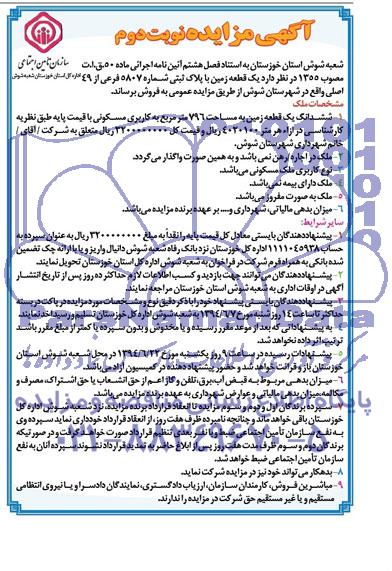 آگهی مزایده نوبت دوم
سازمان تأمین اجتماعی
اداره کل استان خوزستان شعبه شوش
شعبه شوش استان خوزستان به استناد فصل هشتم آئین نامه اجرائی ماده ۵۰.ق.ا.ت
مصوب ۱۳۵۵ در نظر دارد یک قطعه زمین با پلاک ثبتی شماره ۵۸۰۷ فرعی از ۴۹
اصلی واقع در شهرستان شوش از طریق مزایده عمومی به فروش برساند.
مشخصات ملک
۱- ششدانگ یک قطعه زمین به مساحت ۷۹۶ متر مربع به کاربری مسکونی با قیمت پایه طبق نظریه
کارشناسی در ازاء هر متر ۴۰۲۰۱۰۰ ریال و قیمت کل ۳۲۰۰۰۰۰۰۰۰ ریال متعلق به شرکت / آقای /
خانم شهرداری شهرستان شوش.
۲- ملک در اجاره رهن نمی باشد و به همین صورت واگذار می گردد.
۳- نوع کاربری ملک مسکونی می باشد.
۴- ملک دارای بیمه نمی باشد.
۵- ملک به صورت مفروز می باشد.
۶- میزان بدهی مالیاتی، شهرداری و... بر عهده برنده مزایده می باشد.
سایر شرایط:
۱- پیشنهاددهندگان بایستی معادل کل قیمت پایه را نقدا به مبلغ ۳۲۰۰۰۰۰۰۰ ریال به عنوان سپرده به
حساب ۱۱۱۱۰۴۵۹۳۸ اداره کل خوزستان نزد بانک رفاه شعبه شوش دانیال واریز و یا با ارائه چک تضمین
شده بانکی به همراه فرم شرکت در فراخوان به شعبه شوش اداره کل استان خوزستان تحویل نمایند.
۲- پیشنهاددهندگان می توانند جهت بازدید و کسب اطلاعات لازم حداکثر ده روز پس از تاریخ انتشار
آگهی در اوقات اداری به شعبه شوش استان خوزستان مراجعه نمایند.
۳- پیشنهاددهندگان بایستی پیشنهاد خود را با ذکر دقیق نوع و مشخصات مورد مزایده در پاکت دربسته
حداکثر تا ساعت ۱۴ روز شنبه مورخ ۱۳۹۴/۶/۷ به شعبه شوش اداره کل خوزستان تسلیم و رسید اخذ نمایند.
۴- به پیشنهاداتی که بعد از موعد مقرر رسیده و یا مخدوش و بدون سپرده یا کمتر از مبلغ مقرر باشد
ترتیب اثر داده نخواهد شد.
۵- پیشنهادات رسیده در ساعت ۹ روز یکشنبه مورخ ۱۳۹۴/۶/۲۲ در محل شعبه شوش استان
خوزستان باز و قرائت خواهد شد و حضور پیشنهاد دهنده در کمیسیون آزاد می باشد.
۶- میزان بدهی مربوط به قبض آب، برق، تلفن و گاز اعم از حق انشعاب یا حق اشتراک، مصرف و
مکالمه، میزان بدهی مالیاتی و عوارض شهرداری به عهده برنده مزایده می باشد.
۷- سپرده برندگان اول و دوم و سوم مزایده تا انعقاد قرارداد برنده مزایده، نزد شعبه شوش اداره کل
خوزستان باقی خواهد ماند و چنانچه نامبرده ظرف هفت روز، از انعقاد قرارداد خودداری نماید سپرده وی
به نفع سازمان تأمین اجتماعی ضبط و با نفر بعدی تنظیم قرارداد صورت خواهد گرفت و در صورتیکه
برندگان دوم و سوم ظرف مدت هفت روز پس از ابلاغ حاضر به تمدید قرارداد نشدند سپرده آنان به نفع
سازمان تأمین اجتماعی ضبط خواهد شد.
۸- بدهکار می تواند خود نیز در مزایده شرکت نماید.
۹- مباشرین فروش، کارمندان سازمان، ارزیاب دادگستری، نمایندگان دادسرا و یا نیروی انتظامی
مستقیم و یا غیر مستقیم حق شرکت در مزایده را ندارند.